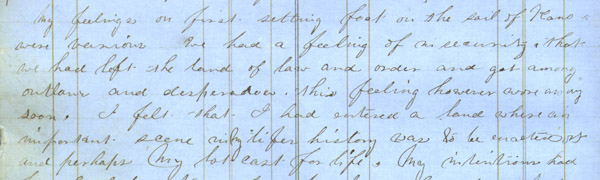 My feelings on first setting foot on the soil of Kans
were various We had a feeling of insecurity, that
we had left the land of law and order and got among
outlaws and desperadoes. This feeling however wore away
soon. I felt that I had entered a land where an
important scene in life history was to be enacted
and perhaps my lot cast for life. My intentions had